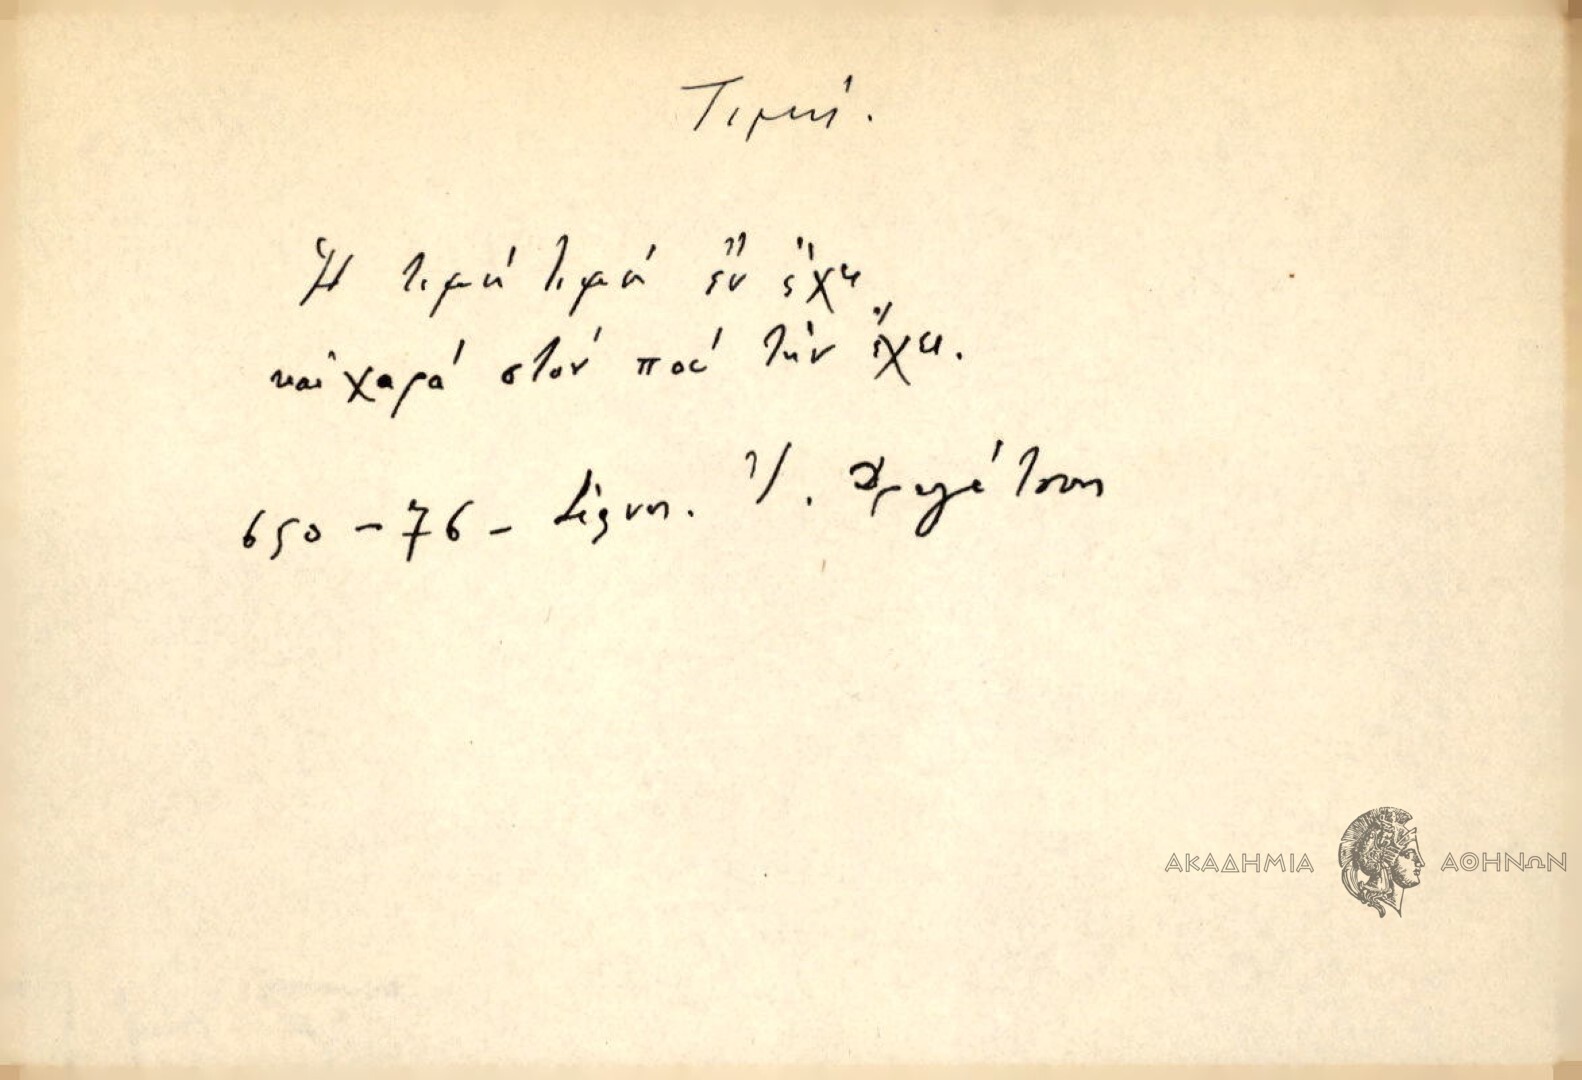 Τιμή.
Ἡ τιμή τιμή ἔν ἔχει
καί χαρά στόν πού τήν ἔχει.
650 - 76 - Σίφνος. Ἰ. Δραγάτσης
ΑΚΑΔΗΜΙΑ ΑΘΗΝΩΝ